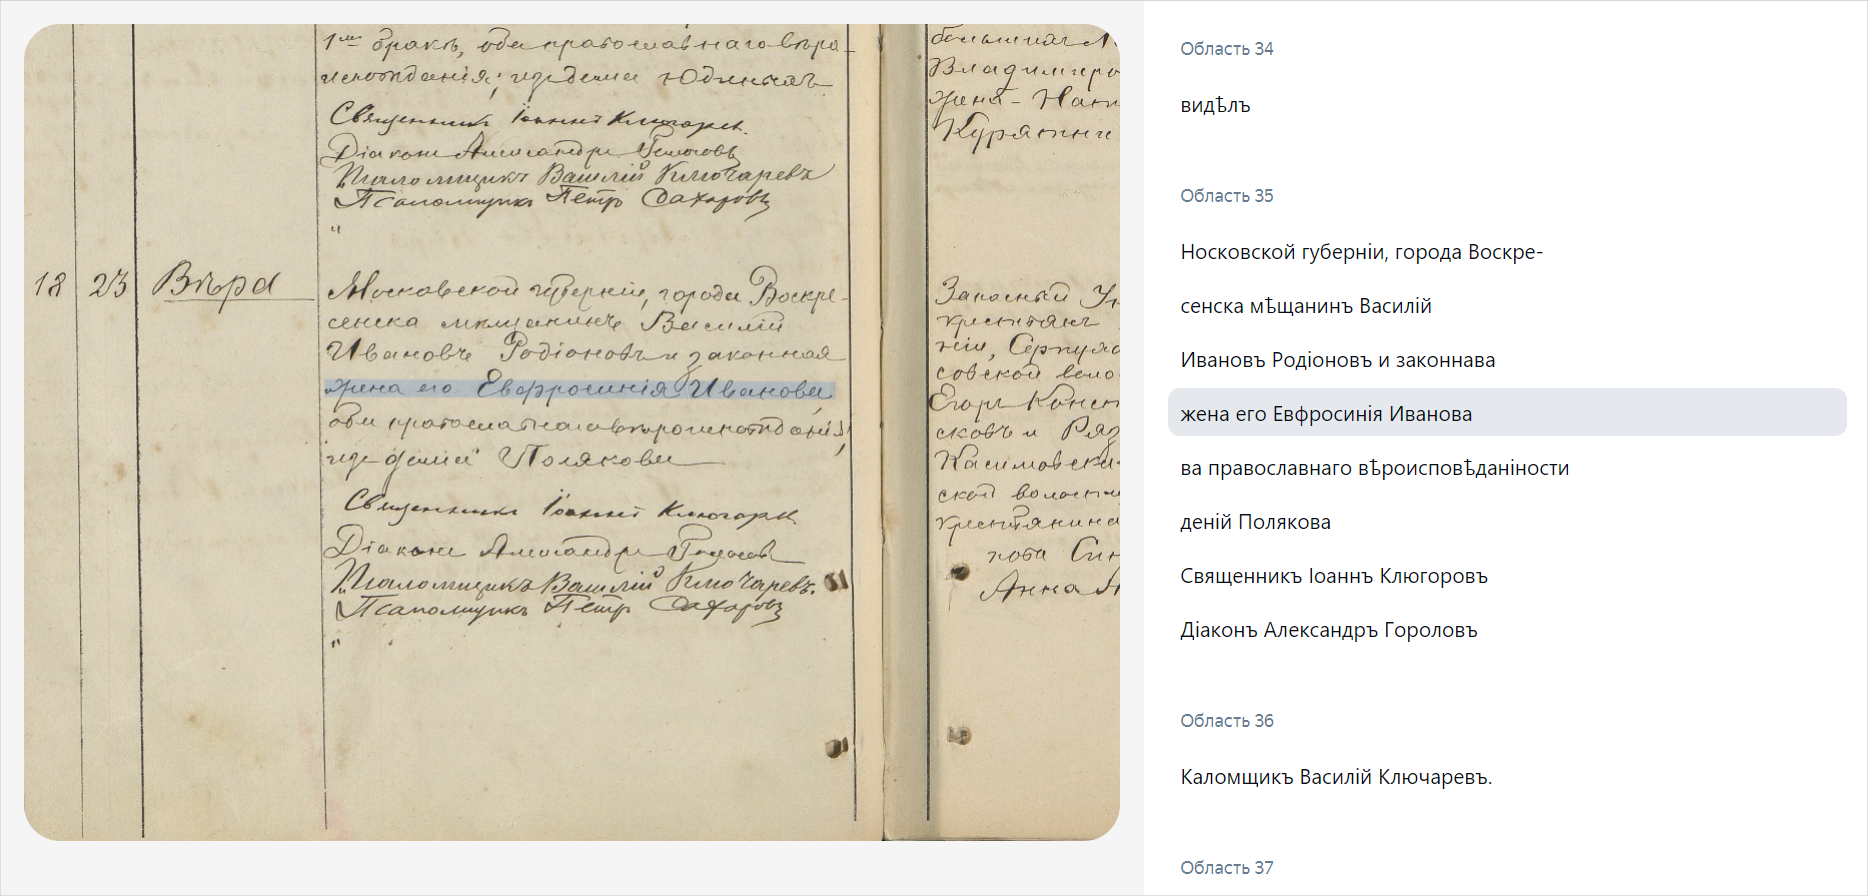 1мъ бракѣ, оба православнаго вѣро-
исповѣданія; гр. дома Юдиныхъ
Священникъ Іоаннъ Ключарев.
Діаконъ Александръ
Псаломщикъ Василій Ключаревъ
Псаломщикъ Петръ Сахаровъ
"
18 23 Вѣра
Московской губерніи, города Воскре-
сенска мѣщанинъ Василій
Ивановъ Родіоновъ и законная
жена его Евфросинія Иванова
оба православнаго вѣроисповѣданія;
Полякова
Священникъ Іоаннъ Ключарев
Діаконъ Александръ
Псаломщикъ Василій Ключаревъ.
Псаломщикъ Петръ Сахаровъ
"
Владимиро
жена - Нат
Запасный Ун
крестьян
ніи, Серпухо
совской воло
Егоръ Конст
сковъ и Ряз
Касимовска
ской волости
крестьянина
Анна
Область 34
видѣлъ
Область 35
Носковской губерніи, города Воскре-
сенска мѣщанинъ Василій
Ивановъ Родіоновъ и законнава
жена его Евфросинія Иванова
ва православнаго вѣроисповѣданіности
деній Полякова
Священникъ Іоаннъ Клюгоровъ
Діаконъ Александръ Гороловъ
Область 36
Каломщикъ Василій Ключаревъ.
Область 37